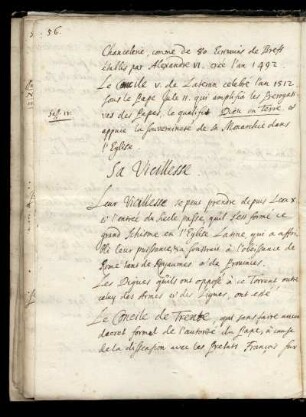 56.
Chancelerie, comme de 80 Ecrivains de Brefs
établis par Alexandre VI. créé l'an 1492
Le Concile V. de Latran celebré l'an 1512
sous le Pape Jule II. qui amplifia les Prerogati-
ves des Papes, le qualifia Dieu en Terre, et
appuia la souveraineté de sa Monarchie dans
l'Eglise
Sess. IV.
Sa Vieillesse
Leur Vieillesse se peut prendre depuis Leon X
et l'entrée du siecle passé, qu'il s'est formé ce
grand Schisme en l'Eglise Latine qui a affoi-
bli leur puissance, et a soustrait à l'obeissance de
Rome tant de Royaumes et de Provinces.
Les Digues qu'ils ont opposé à ce Torrent, outre
celuy des Armes et des Ligues, ont été
Le Concile de Trente, qui sans faire aucun
decret formel de l'autorité du Pape, à cause
de la dissension avec les Prelats François sur